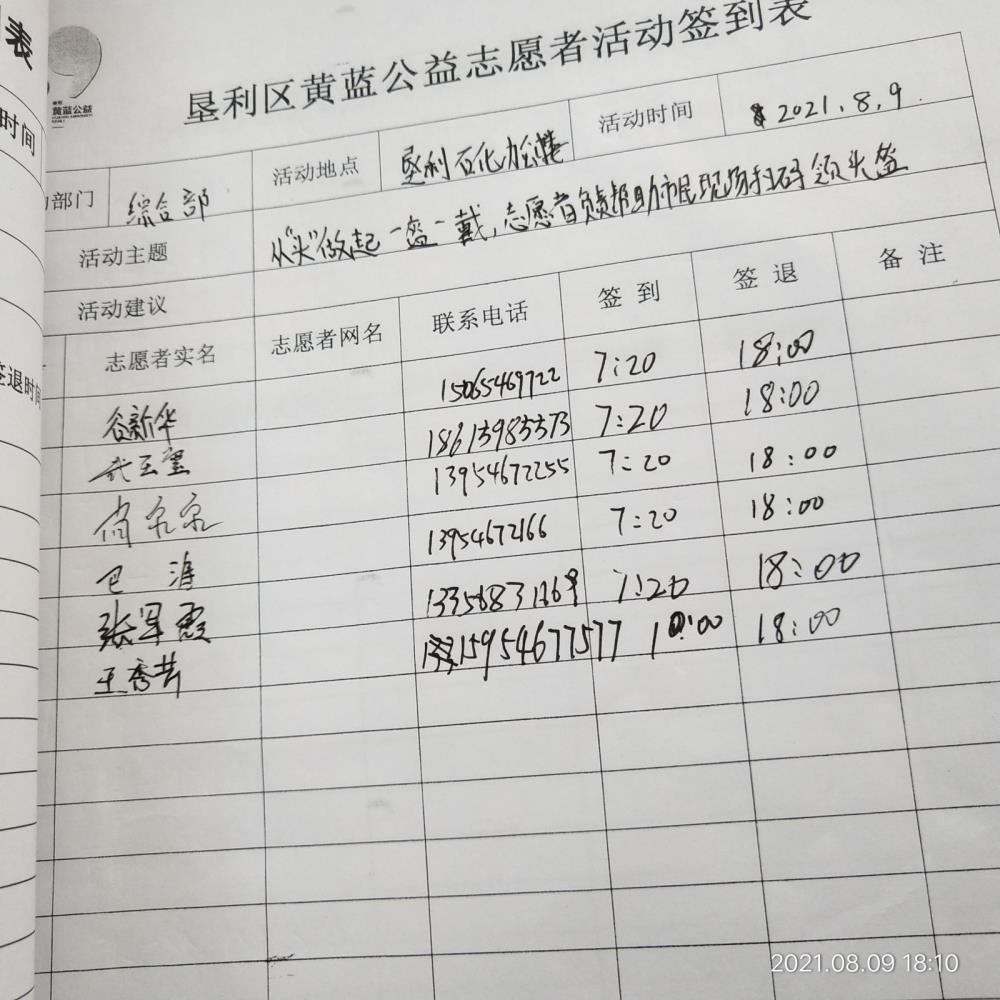 表
黄蓝公益
垦利区黄蓝公益志愿者活动签到表
时间
部门 综合部 活动地点 垦利石化办公楼 活动时间 2021.8.9.
活动主题 从"头"做起 一盔一戴,志愿者负责帮助市民现场扫码领头盔
活动建议
志愿者实名 志愿者网名 联系电话 签到 签退 备注
签退时间
谷新华 15065469722 7:20 18:00
18613983373 7:20 18:00
尚泉泉 13954672255 7:20 18:00
13954672166 7:20 18:00
张军霞 13356831269 7:20 18:00
王秀芸 15954677577 10:00 18:00
2021.08.09 18:10